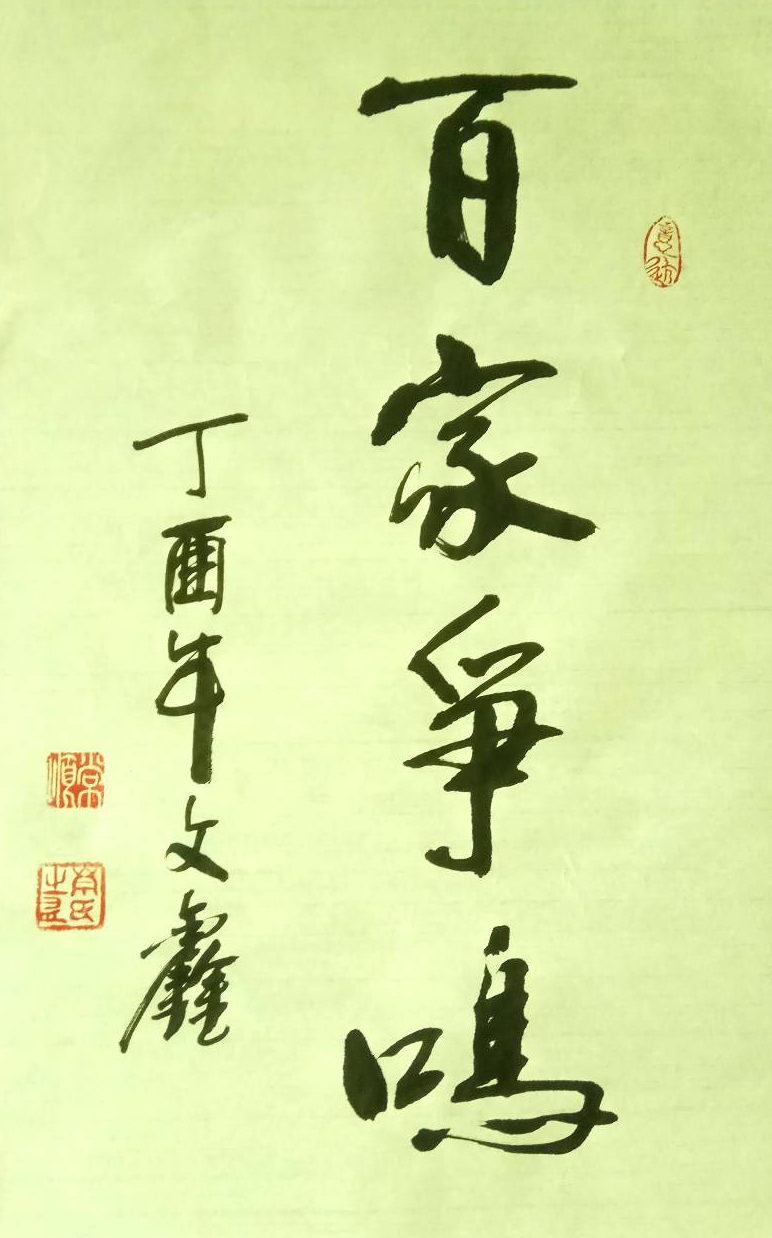 百家爭鳴
丁酉年文鑫